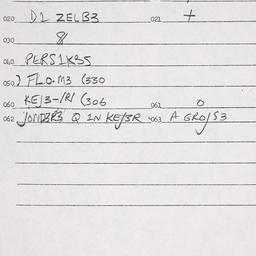 020 D1 ZELB3 021 +
030 8/
040 PERS1K35
050 ) FLO.M3 (330
060 KEJ3-/R/ (306 061 O
062 Q IN KE/3R 063 A GRO/S3